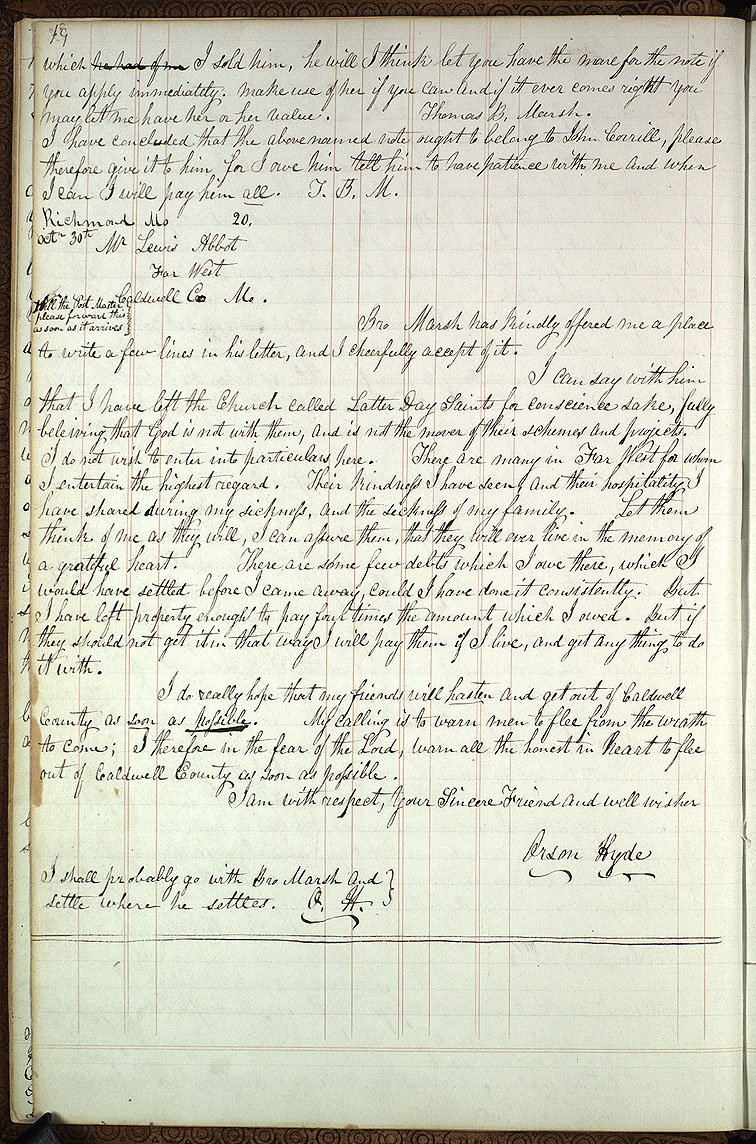 19
which he had of me I sold him, he will I think let you have the mare for the note if
you apply immediately. make use of her if you can and if it ever comes right you
may let me have her or her value. Thomas B. Marsh.
I have concluded that the above named note ought to belong to John Corrill, please
therefore give it to him for I owe him tell him to have patience with me and when
I can I will pay him all. T. B. M.
Richmond Mo 20.
Octr 30th Mr Lewis Abbot
Far West
Caldwell Co Mo.
Will the Post Master
please forward this
as soon as it arrives
Bro Marsh has kindly offered me a place
to write a few lines in his letter, and I cheerfully accept of it.
I can say with him
that I have left the Church called Latter Day Saints for conscience sake, fully
beleiving that God is not with them, and is not the mover of their schemes and projects.
I do not wish to enter into particulars here. There are many in Far West for whom
I entertain the highest regard. Their kindness I have seen, and their hospitality I
have shared during my sickness, and the sickness of my family. Let them
think of me as they will, I can assure them, that they will ever live in the memory of
a grateful heart. There are some few debts which I owe there, which I
would have settled before I came away, could I have done it consistently. But
I have left property enough to pay four times the amount which I owed. But if
they should not get it in that way I will pay them if I live, and get any thing to do
it with.
I do really hope that my friends will hasten and get out of Caldwell
County as soon as possible. My calling is to warn men to flee from the wrath
to come; I therefore in the fear of the Lord, warn all the honest in heart to flee
out of Caldwell County as soon as possible.
I am with respect, Your Sincere Friend and well wisher
Orson Hyde
I shall probably go with Bro Marsh and
settle where he settles. O. H.